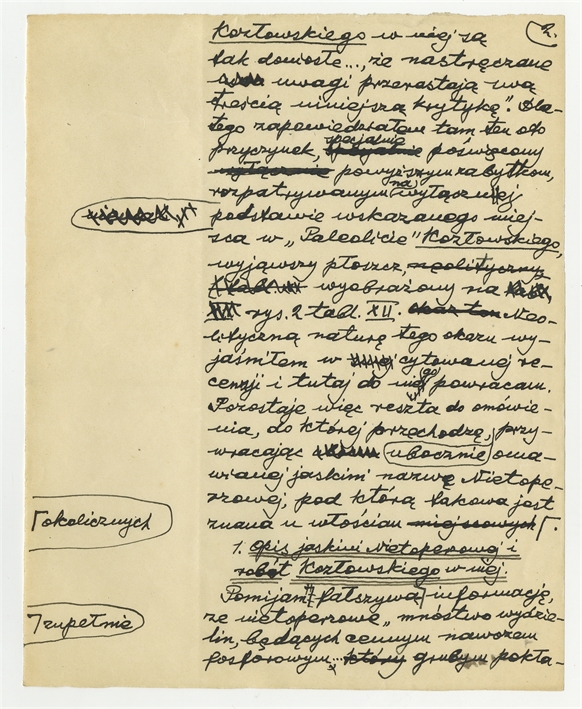 2.
Kozłowskiego w niej są
tak doniosłe..., że nastręczane
uwagi przerastają swą
treścią niniejszą krytykę". Dla-
tego zapowiedziałem tam ten oto
przyczynek, specjalnie poświęcony
wyłącznie powyższym zabytkom,
rozpatrywanym na wyłącznej
podstawie wskazanego miej-
sca w „Paleolicie" Kozłowskiego,
wyjąwszy płoszcz, neolityczny
wyobrażony na
XII rys. 2 tabl. XII. Neo-
lityczną naturę tego okazu wy-
jaśniłem w cytowanej re-
cenzji i tutaj do niego powracam.
Pozostaje więc reszta do omówie-
nia, do której przechodzę, przy-
wracając ubocznie oma-
wianej jaskini nazwę Nietope-
rzowej, pod którą takowa jest
znana u włościan miejscowych Γ.
Γ okolicznych
1. Opis jaskini Nietoperzowej i
robót Kozłowskiego w niej.
Pomijam fałszywą informację,
ꓶ zupełnie
że nietoperzowe „mnóstwo wydzie-
lin, będących cennym nawozem
fosforowym... który grubym pokła-